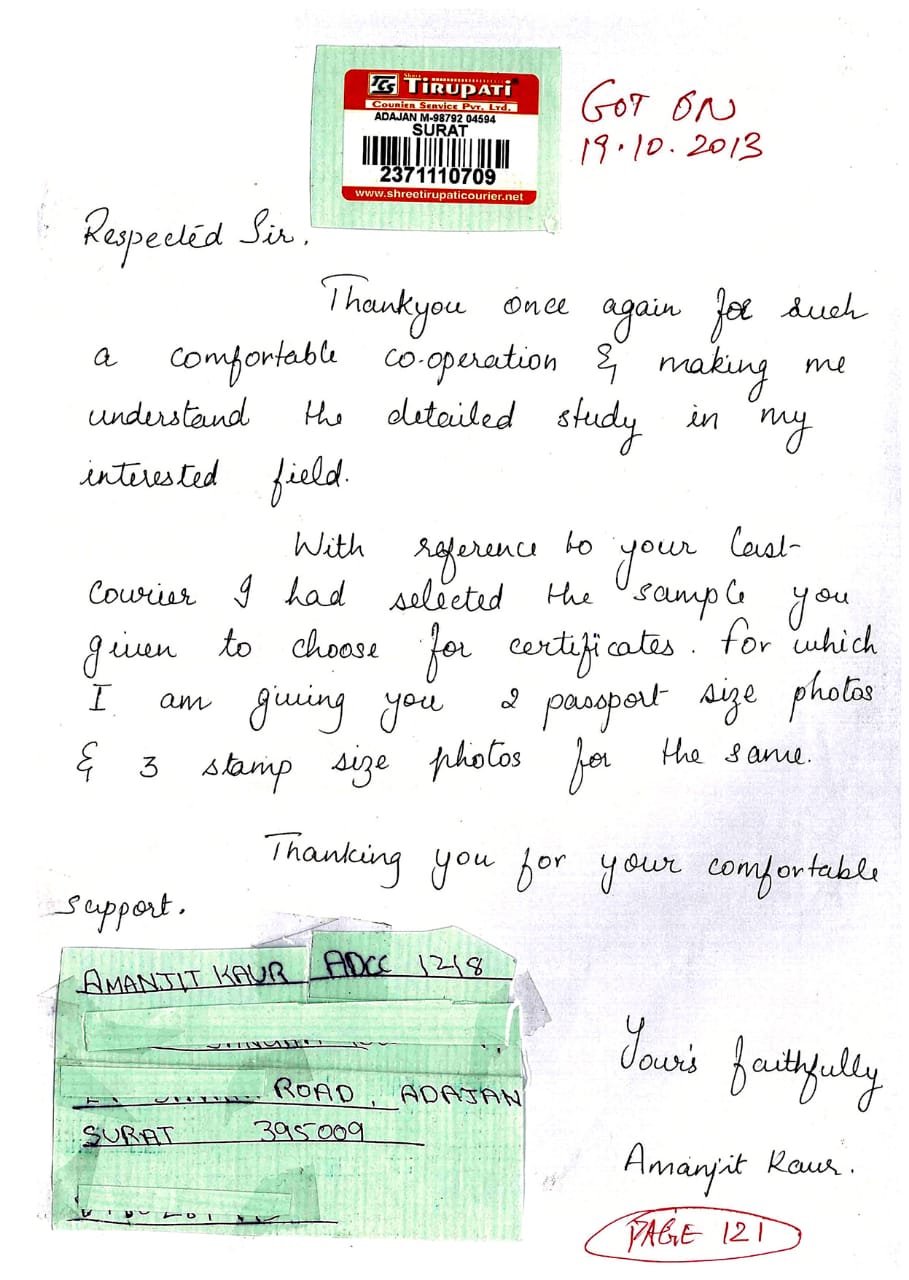 TCS Shree TIRUPATI
Courier Service Pvt. Ltd.
ADAJAN M-98792 04594
SURAT
2371110709
www.shreetirupaticourier.net
GOT ON
19.10.2013
Respected Sir,
Thankyou once again for such
a comfortable co-operation & making me
understand the detailed study in my
interested field.
With reference to your last
Courier I had selected the sample you
given to choose for certificates. For which
I am giving you 2 passport size photos
& 3 stamp size photos for the same.
Thanking you for your comfortable
support.
AMANJIT KAUR ADCC 1218
ROAD, ADAJAN
SURAT 395009
Your's faithfully
Amanjit Kaur.
PAGE 121